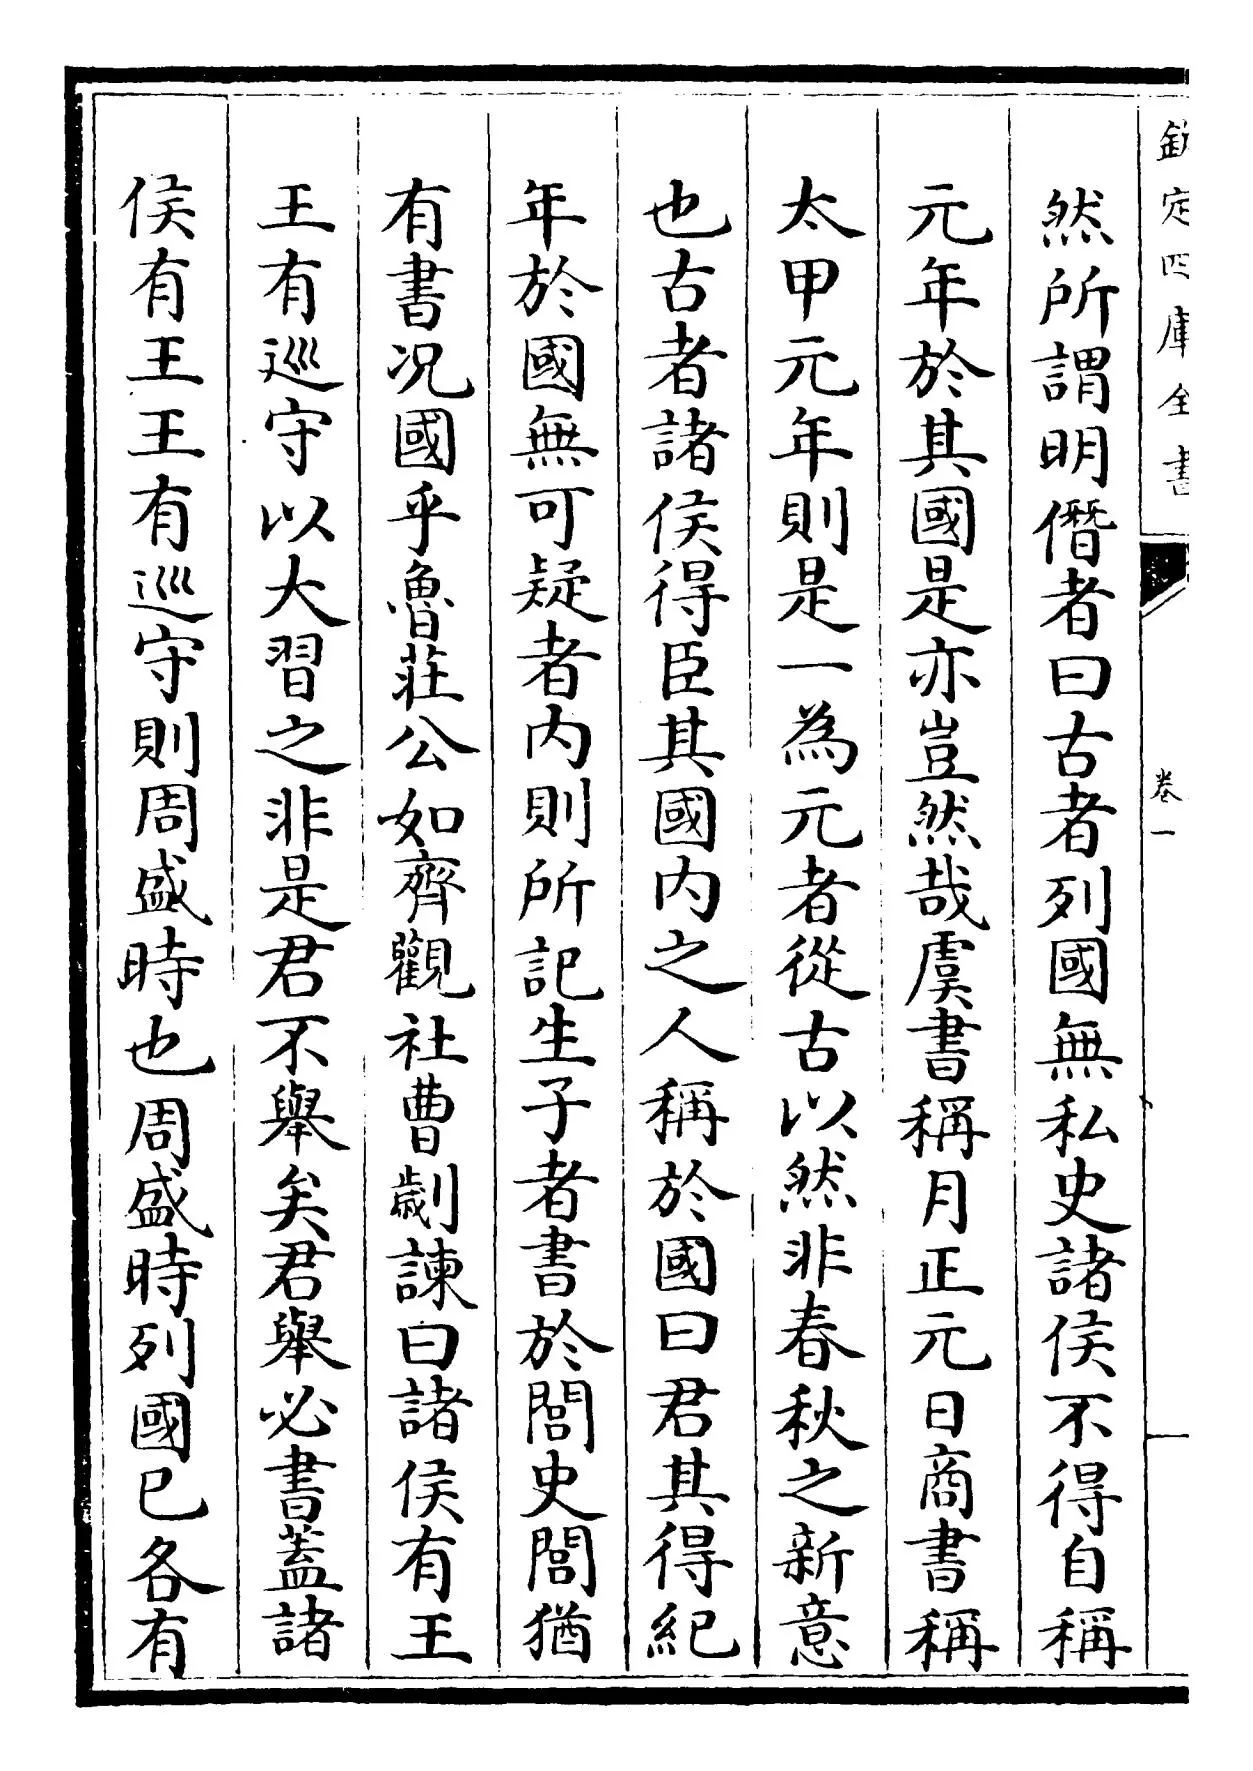 欽定四庫全書
卷一
然所謂明僭者曰古者列國無私史諸侯不得自稱
元年於其國是亦豈然哉虞書稱月正元日商書稱
太甲元年則是一為元者從古以然非春秋之新意
也古者諸侯得臣其國内之人稱於國曰君其得紀
年於國無可疑者内則所記生子者書於閭史閭猶
有書况國乎魯莊公如齊觀社曹劌諫曰諸侯有王
王有巡守以大習之非是君不舉矣君舉必書蓋諸
侯有王王有巡守則周盛時也周盛時列國已各有